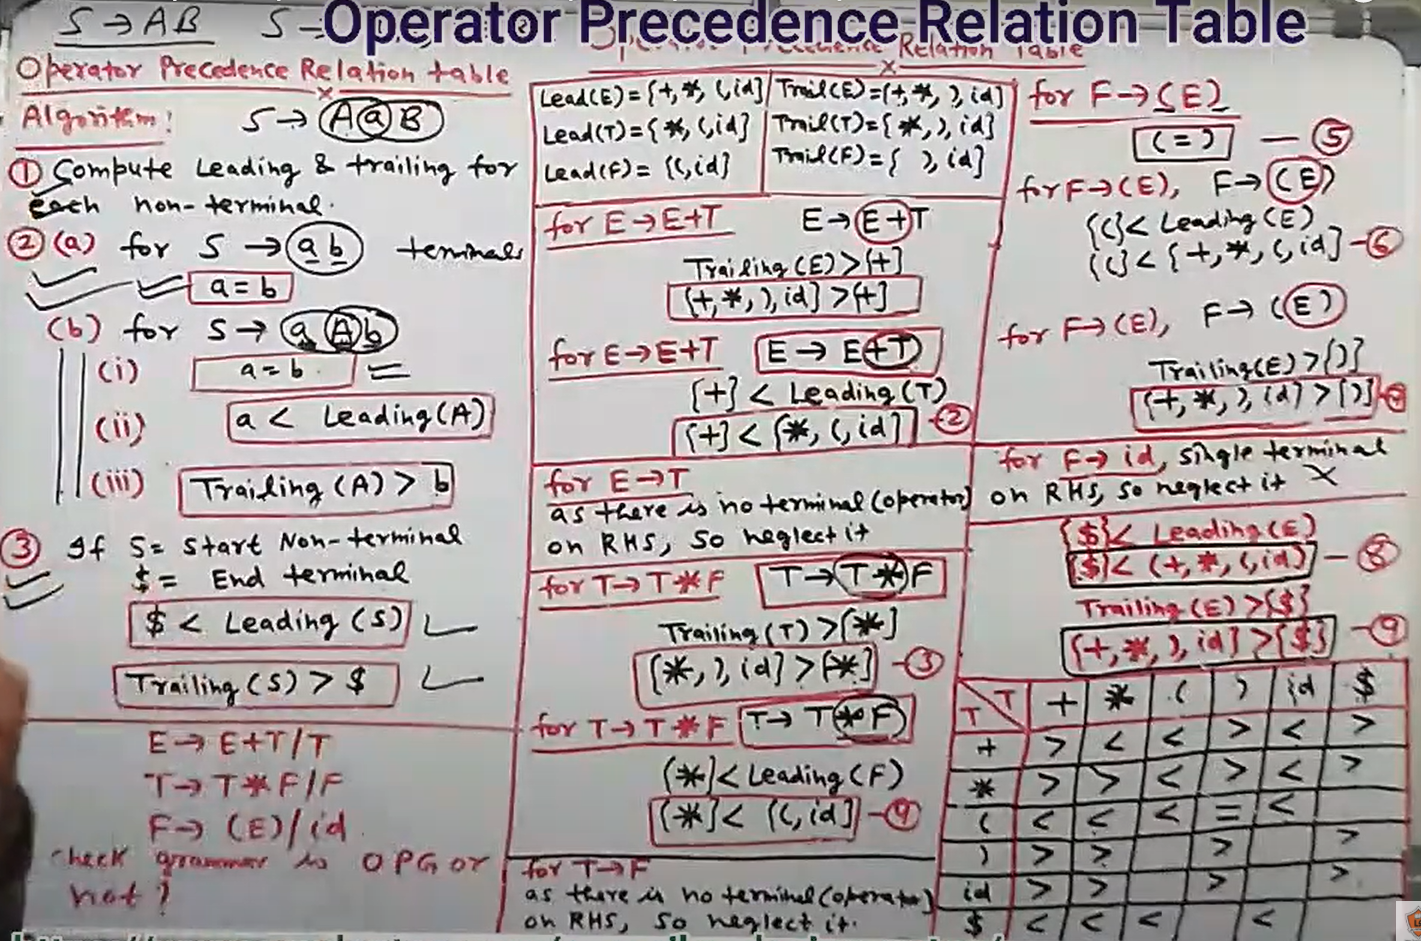 Operator Precedence Relation Table
S → AB S →
Relation Table
Operator Precedence Relation table
Algorithm: S → A a B
① Compute Leading & trailing for
each non-terminal.
② (a) for S → a b terminals
a = b
(b) for S → a A b
(i) a = b
(ii) a < Leading(A)
(iii) Trailing (A) > b
③ If S = Start Non-terminal
$ = End terminal
$ < Leading (S)
Trailing (S) > $
E → E+T/T
T → T*F/F
F → (E)/id
Check grammar is OPG or
not?
Lead(E) = {+, *, (, id} Trail(E) = {+, *, ), id}
Lead(T) = {*, (, id} Trail(T) = {*, ), id}
Lead(F) = {(, id} Trail(F) = { ), id}
for E → E+T E → E+T
Trailing (E) > {+}
{+, *, ), id} > {+}
for E → E+T E → E+T
{+} < Leading (T)
{+} < {*, (, id} - ②
for E → T
as there is no terminal (operator)
on RHS, so neglect it
for T → T * F T → T * F
Trailing (T) > {*}
{*, ), id} > {*} - ③
for T → T * F T → T * F
{*} < Leading (F)
{*} < {(, id} - ④
for T → F
as there is no terminal (operator)
on RHS, so neglect it.
for F → (E)
( = ) — ⑤
for F → (E), F → (E)
{(} < Leading (E)
{(} < {+, *, (, id} - ⑥
for F → (E), F → (E)
Trailing (E) > {)}
{+, *, ), id} > {)} - ⑦
for F → id, single terminal
on RHS, so neglect it X
{$} < Leading (E)
{$} < {+, *, (, id} - ⑧
Trailing (E) > {$}
{+, *, ), id} > {$} - ⑨
T T + * ( ) id $
+ > < < > < >
* > > < > < >
( < < < = <
) > > > >
id > > > >
$ < < < <